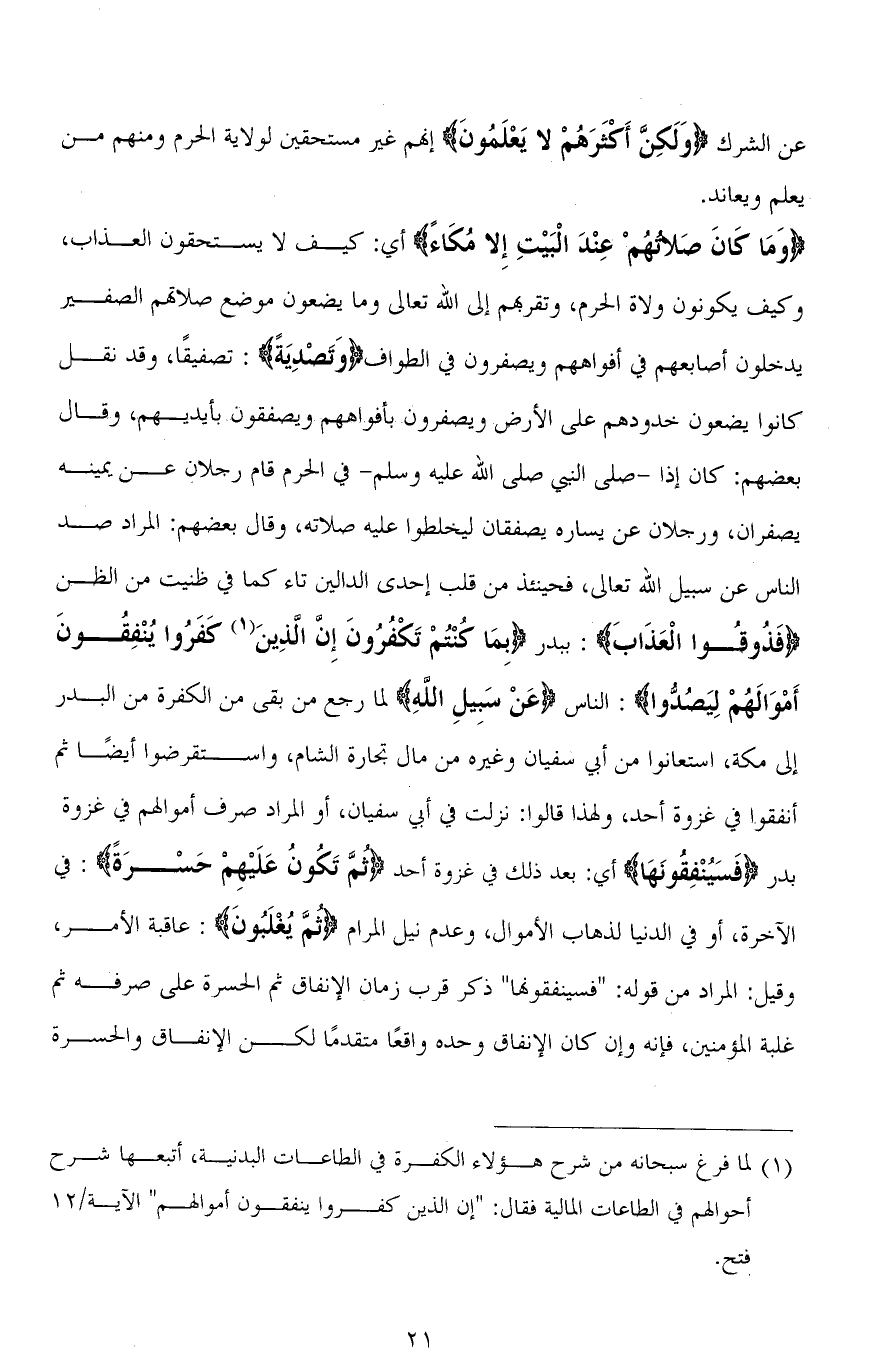 عن الشرك ﴿وَلَكِنَّ أَكْثَرَهُمْ لا يَعْلَمُونَ﴾ إنهم غير مستحقين لولاية الحرم ومنهم مـــن
يعلم ويعاند.
﴿وَمَا كَانَ صَلاتُهُمْ عِنْدَ الْبَيْتِ إِلا مُكَاءً﴾ أي: كيــف لا يســتحقون العــذاب،
وكيف يكونون ولاة الحرم، وتقربهم إلى الله تعالى وما يضعون موضع صلاتهم الصفــير
يدخلون أصابعهم في أفواههم ويصفرون في الطواف﴿وَتَصْدِيَةً﴾ : تصفيقًا، وقد نقــل
كانوا يضعون خدودهم على الأرض ويصفرون بأفواههم ويصفقون بأيديــهم، وقــال
بعضهم: كان إذا -صلى النبي صلى الله عليه وسلم- في الحرم قام رجلان عــن يمينــه
يصفران، ورجلان عن يساره يصفقان ليخلطوا عليه صلاته، وقال بعضهم: المراد صــد
الناس عن سبيل الله تعالى، فحينئذ من قلب إحدى الدالين تاء كما في ظنيت من الظــن
﴿فَذُوقُــوا الْعَذَابَ﴾ : ببدر ﴿بِمَا كُنْتُمْ تَكْفُرُونَ إِنَّ الَّذِينَ(١) كَفَرُوا يُنْفِقُــونَ
أَمْوَالَهُمْ لِيَصُدُّوا﴾ : الناس ﴿عَنْ سَبِيلِ اللَّهِ﴾ لما رجع من بقى من الكفرة من البــدر
إلى مكة، استعانوا من أبي سفيان وغيره من مال تجارة الشام، واســتقرضوا أيضًــا ثم
أنفقوا في غزوة أحد، ولهذا قالوا: نزلت في أبي سفيان، أو المراد صرف أموالهم في غزوة
بدر ﴿فَسَيُنْفِقُونَهَا﴾ أي: بعد ذلك في غزوة أحد ﴿ثُمَّ تَكُونُ عَلَيْهِمْ حَسْــرَةً﴾ : في
الآخرة، أو في الدنيا لذهاب الأموال، وعدم نيل المرام ﴿ثُمَّ يُغْلَبُونَ﴾ : عاقبة الأمــر،
وقيل: المراد من قوله: "فسينفقونها" ذكر قرب زمان الإنفاق ثم الحسرة على صرفــه ثم
غلبة المؤمنين، فإنه وإن كان الإنفاق وحده واقعًا متقدمًا لكــن الإنفــاق والحســرة
(١) لما فرغ سبحانه من شرح هــؤلاء الكفــرة في الطاعــات البدنيــة، أتبعــها شــرح
أحوالهم في الطاعات المالية فقال: "إن الذين كفــروا ينفقــون أموالهــم" الآيــة/١٢
فتح.
٢١